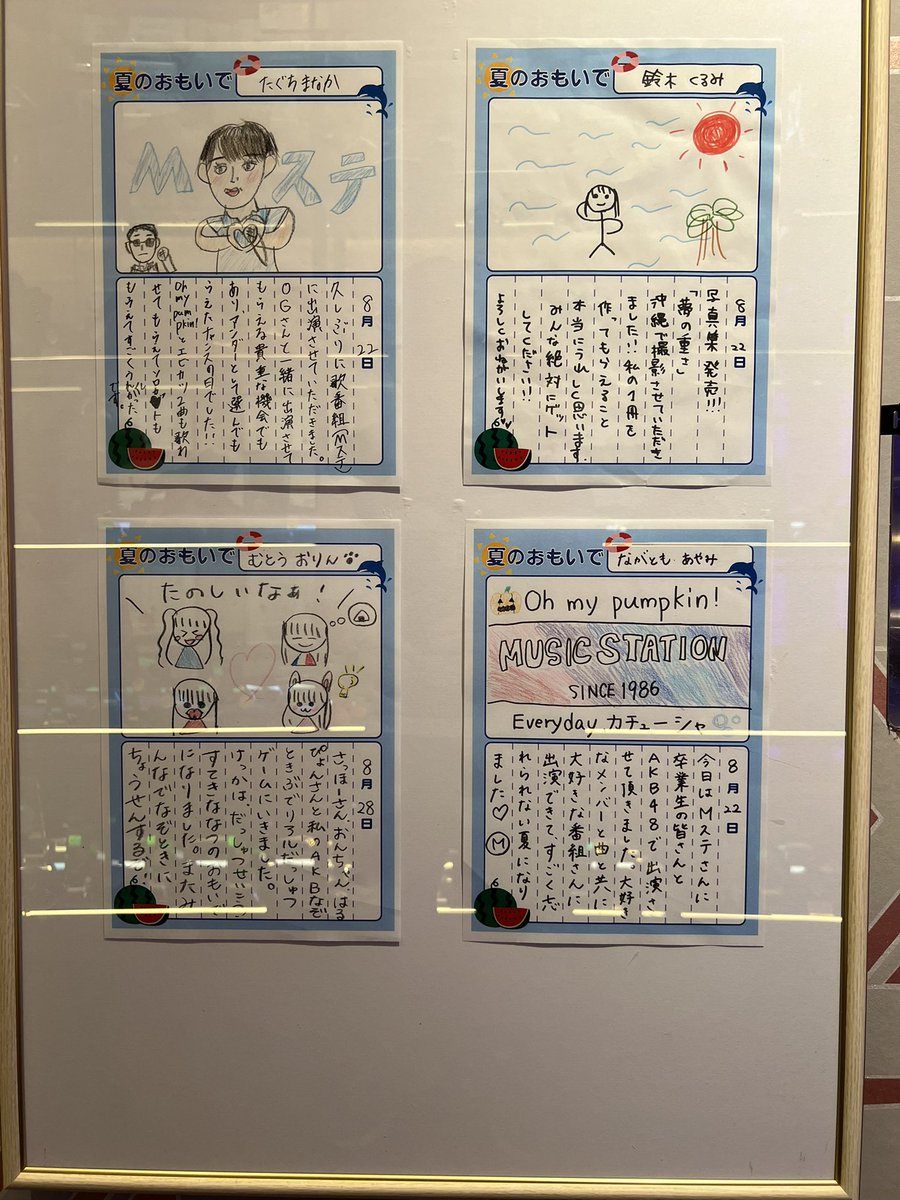 夏のおもいで
たぐちまなか
Mステ
8月22日
久しぶりに歌番組(Mステ)
に出演させていただきました。
OGさんと一緒に出演させて
もらえる貴重な機会でも
あり、アンダーとして選んでも
らえたチャンスの日でした!!
Oh my pumpkin!とエビカツ2曲も歌わ
せてもらえてソロショットも
もらえてすごくうれしかった
です。
夏のおもいで
鈴木 くるみ
8月22日
写真集発売!!!
「夢の重さ」
沖縄で撮影させていただき
ました!!私の1冊を
作ってもらえること
本当にうれしく思います。
みんな絶対にゲット
してください!!
よろしくおねがいします♥
夏のおもいで
むとう おりん
たのしいなぁ!
8月28日
さっほーさん、おんちゃん、はる
ぴょんさんと私のAKBなぞ
ときぶでリアルだっしゅつ
ゲームにいきました。
けっかは、だっしゅつせいこう
すてきななつのおもいで
になりました。またみ
んなでなぞときに
ちょうせんするぞ!
夏のおもいで
ながとも あやみ
Oh my pumpkin!
MUSIC STATION
SINCE 1986
Everyday カチューシャ
8月22日
今日はMステさんに
卒業生の皆さんと
AKB48で出演さ
せて頂きました。大好き
なメンバーと曲と共に
大好きな番組さんに
出演できて、すごく忘
れられない夏になり
ました♡ Ⓜ